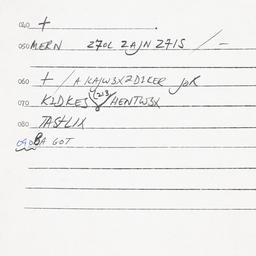 040 + .
050 MERN 27OL 2AJN 271S / –
060 + / A KAJW3X2DICER JOR
070 KIDKEJ (213) HENTW3X
080 TASTLIX
090 BA GOT